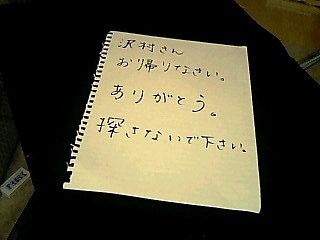 沢村さん
お帰りなさい。
ありがとう。
探さないで下さい。